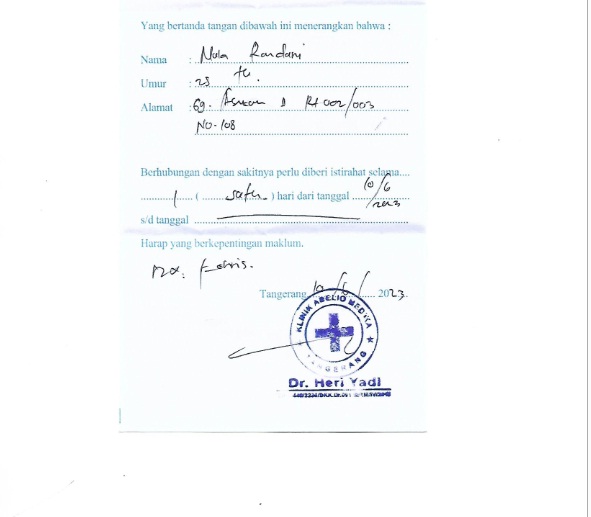 Yang bertanda tangan dibawah ini menerangkan bahwa :
Nama : Mula Randani
Umur : 25 th.
Alamat : Gg. D Rt 002/003
No-108
Berhubungan dengan sakitnya perlu diberi istirahat selama....
1 ( satu ) hari dari tanggal 10/6/2023
s/d tanggal
Harap yang berkepentingan maklum.
Dx: Febris.
Tangerang, 10/6/2023.
KLINIK ABELIO MEDIKA
TANGERANG
Dr. Heri Yadi